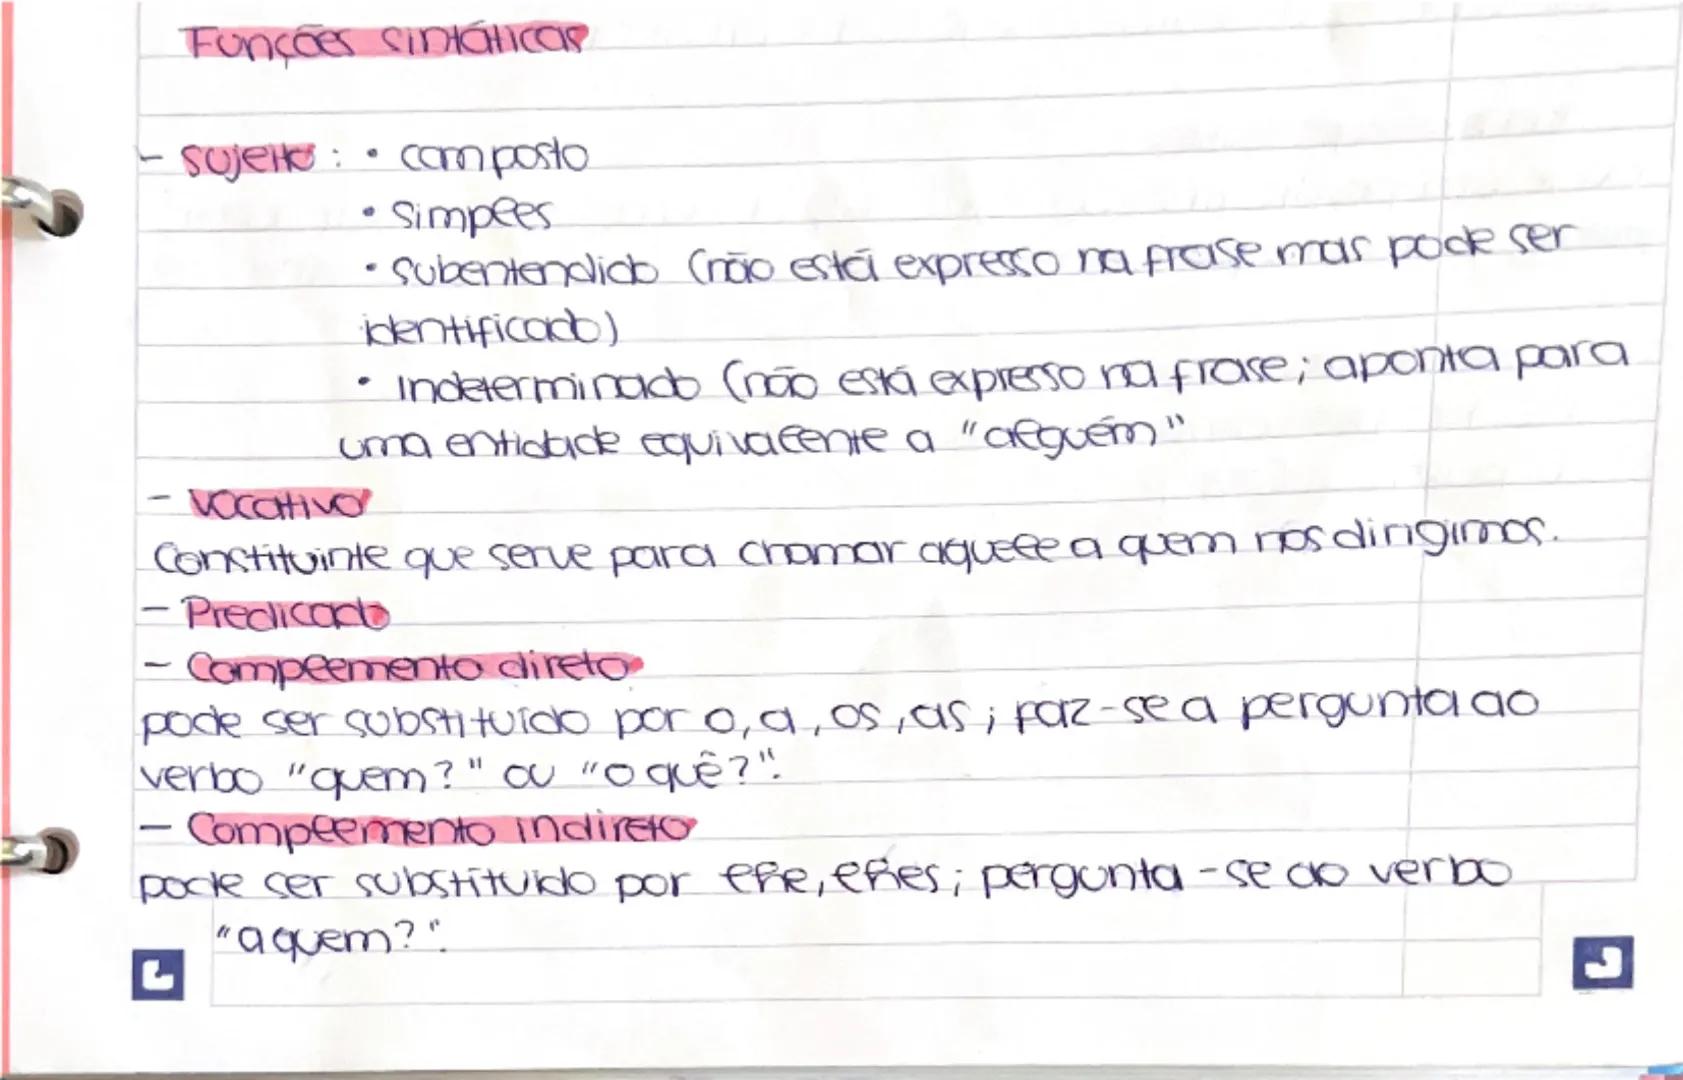 Funções sintáticas
- sujeito : • composto
• simples
• subentendido (não está expresso na frase mas pode ser
identificado)
• indeterminado (não está expresso na frase; aponta para
uma entidade equivalente a "alguém"
- vocativo
Constituinte que serve para chamar aquele a quem nos dirigimos.
- Predicado
- Complemento direto
pode ser substituído por o, a, os, as; faz-se a pergunta ao
verbo "quem?" ou "o quê?".
- Complemento indireto
pode ser substituido por lhe, lhes; pergunta-se ao verbo
"a quem?".